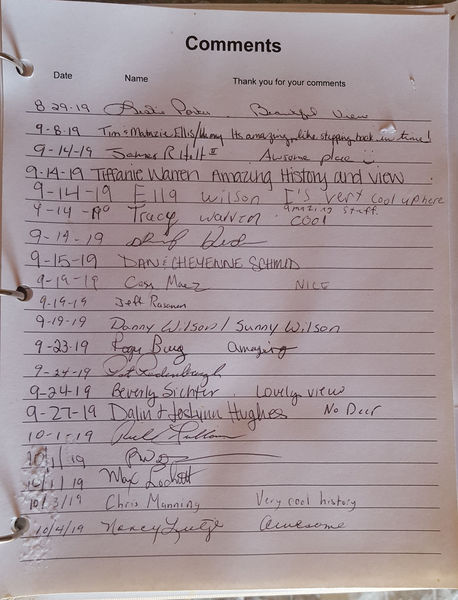 Comments
Date Name Thank you for your comments
8-29-19 Beautiful View
9-8-19 Tim & Ellis/ Its amazing, like stepping back in time!
9-14-19 James R Holt II Awsome place
9-14-19 Tiffanie Warren Amazing History and view
9-14-19 Ella Wilson I's very cool up here
9-14-19 Tracy Warren cool amazing stuff.
9-14-19
9-15-19 DAN & CHEYENNE SCHMID
9-19-19 Cass NICE
9-19-19 Jeff
9-19-19 Danny Wilson / Sunny Wilson
9-23-19 Roger Amazing
9-24-19 Pat
9-24-19 Beverly Sichter Lovely view
9-27-19 Dalin & Hughes No Deer
10-1-19
10/1/19
10/1/19 Max Lockett
10/3/19 Chris Manning Very cool history
10/4/19 Nancy Awesome